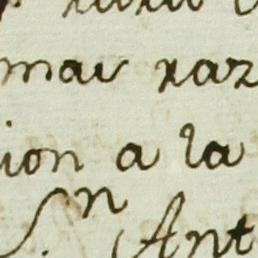 mas raz
ion a la
S.n Ant